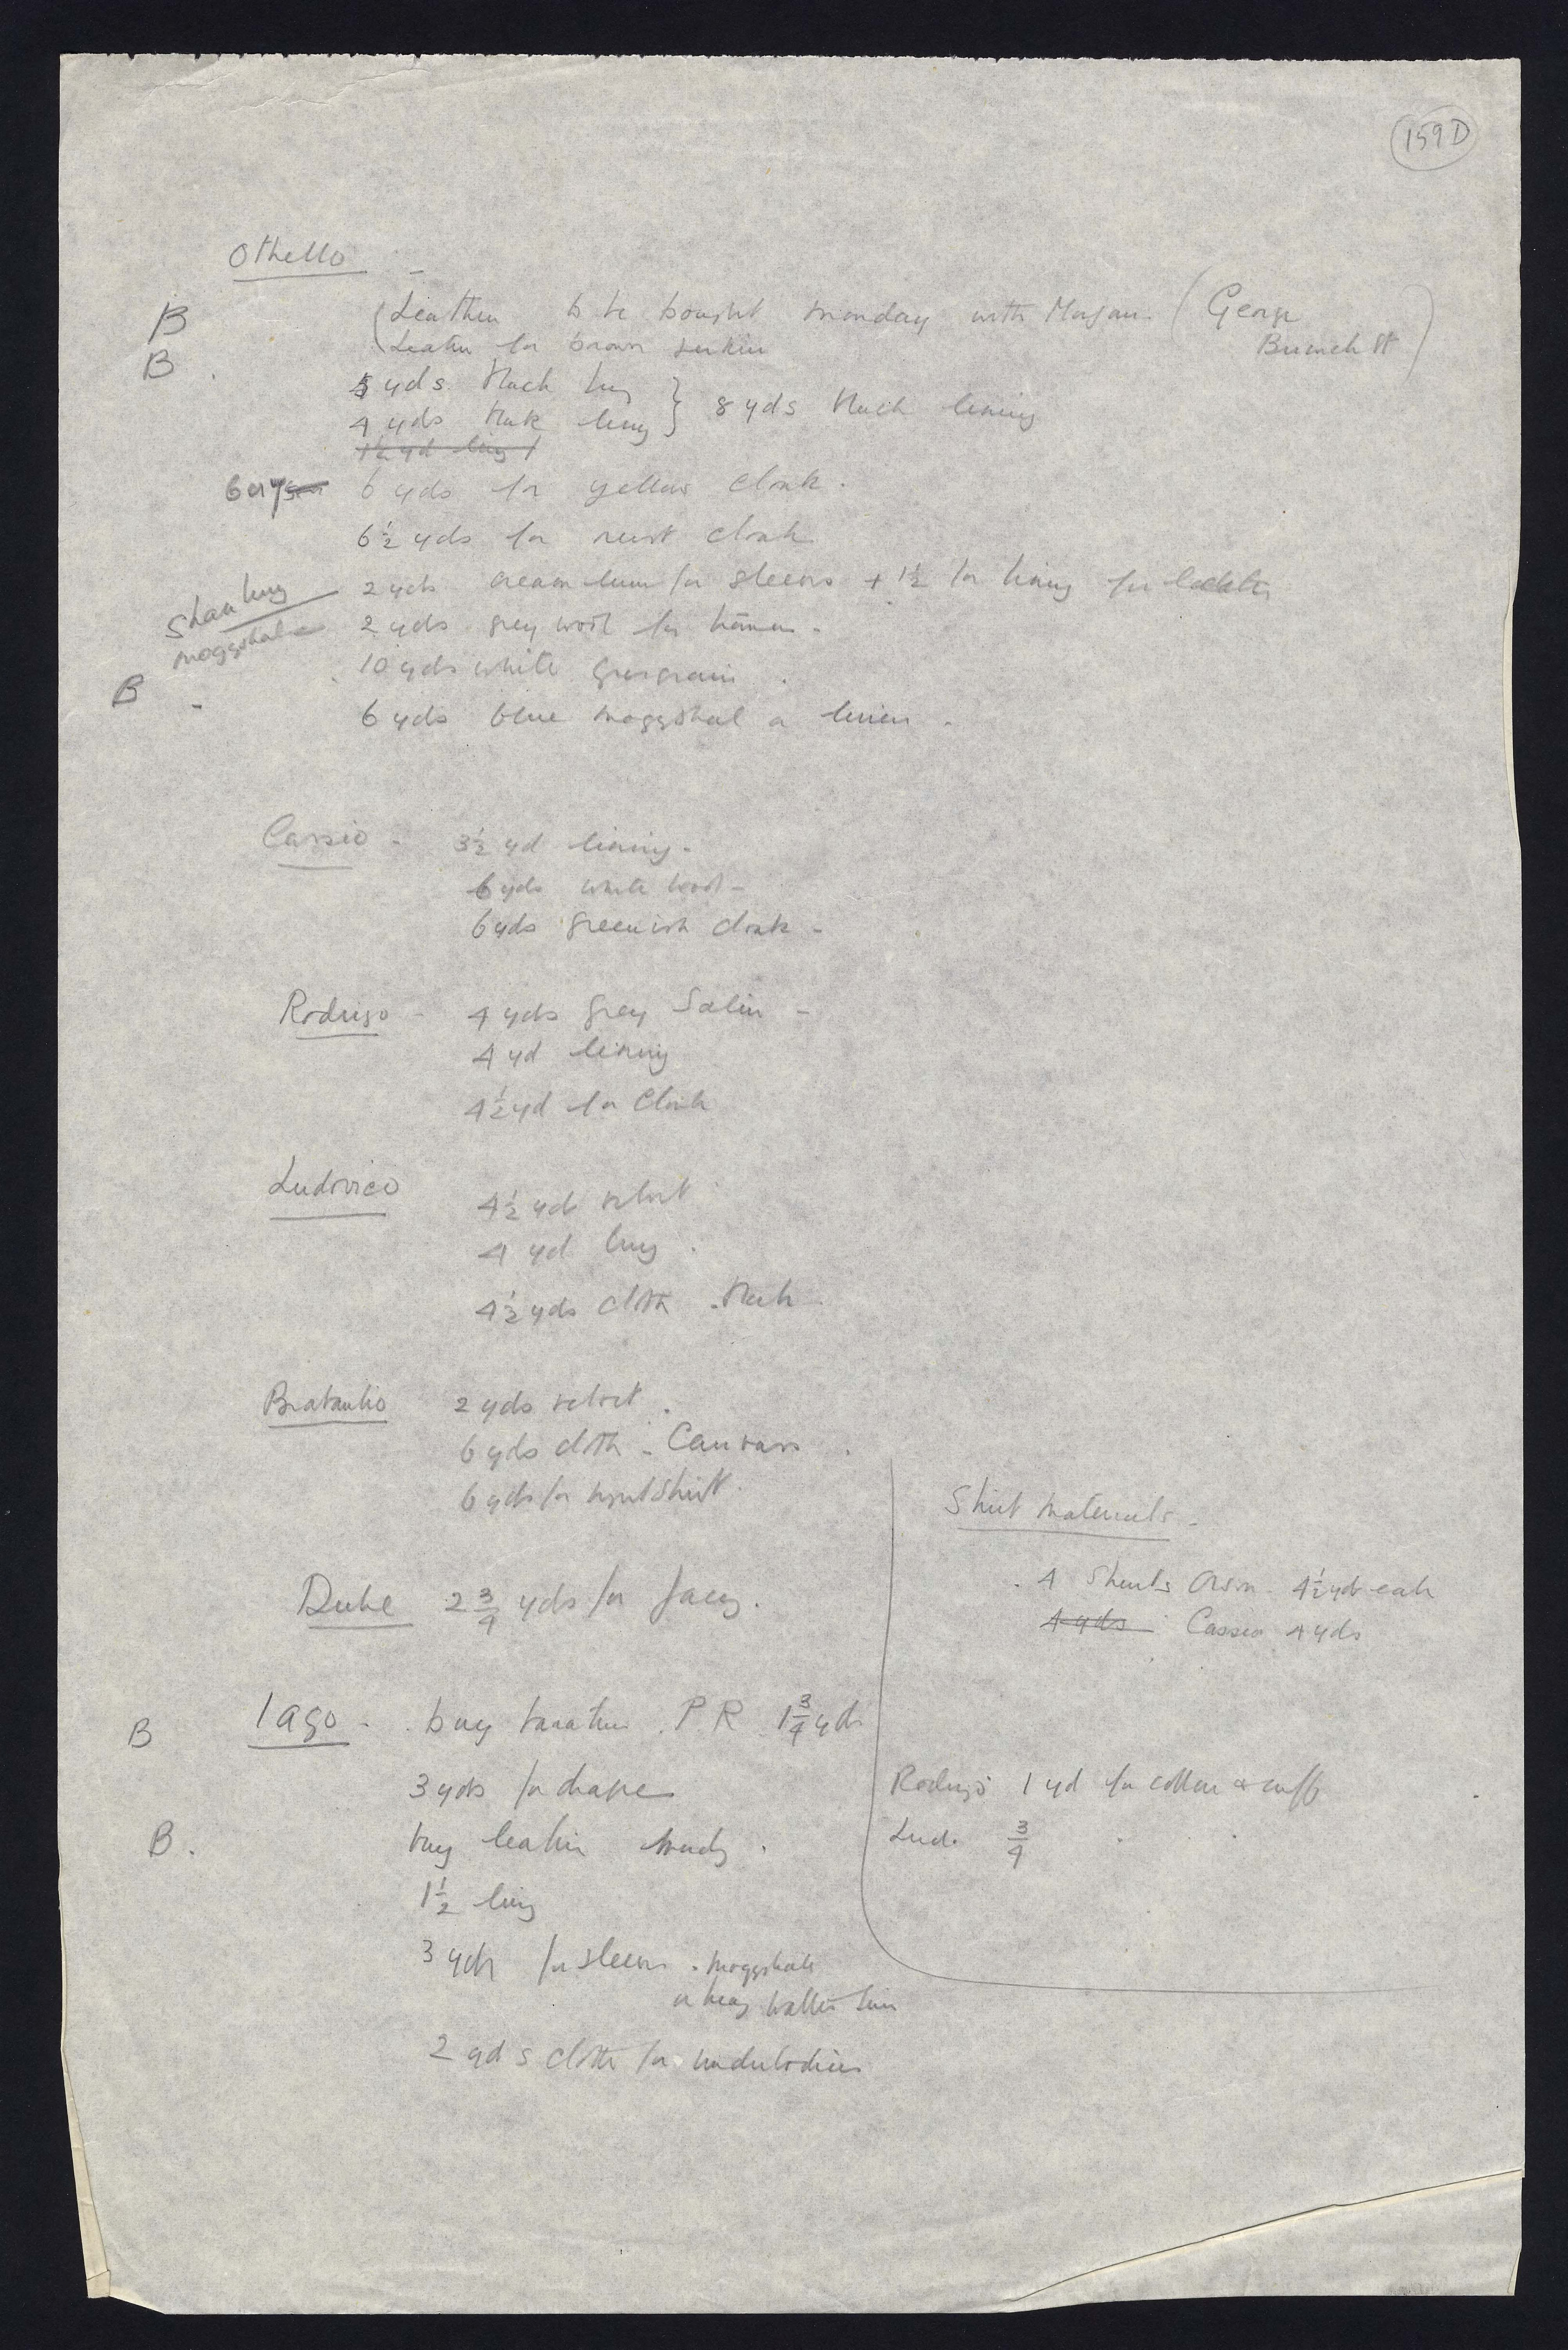 159D
Othello -
B (Leather to be bought monday with Morgan. (George
B Leather for brown Jerkin
5 yds black
4 yds } 8 yds black lining
6 yds for yellow cloak.
6½ yds for rust cloak
2 yds cream linen for sleeves + 1½ for lining for
moggshal 2 yds grey wool for
10 yds white grosgrain.
B - 6 yds blue moggshal or linen -
Cassio - 3½ yd lining -
6 yds white wool -
6 yds greenish cloak -
Rodrigo - 4 yds grey Satin -
4 yd lining
4½ yd for Cloak
Ludovico 4½ yds velvet
4 yd
4½ yds cloth - black
Brabantio 2 yds velvet.
6 yds cloth - Canvas.
6 yds for nightshirt.
Duke 2¾ yds for
B Iago - buy P.R. 1¾ yds
3 yds for drape
B. buy leather
1½
3 yds for sleeves. moggshal
or
2 yds cloth for underbodies
Shirt materials -
4 Shirts Orson - 4½ yds each
4 yds Cassio 4 yds
Rodrigo 1 yd for collar & cuffs
Lud. ¾